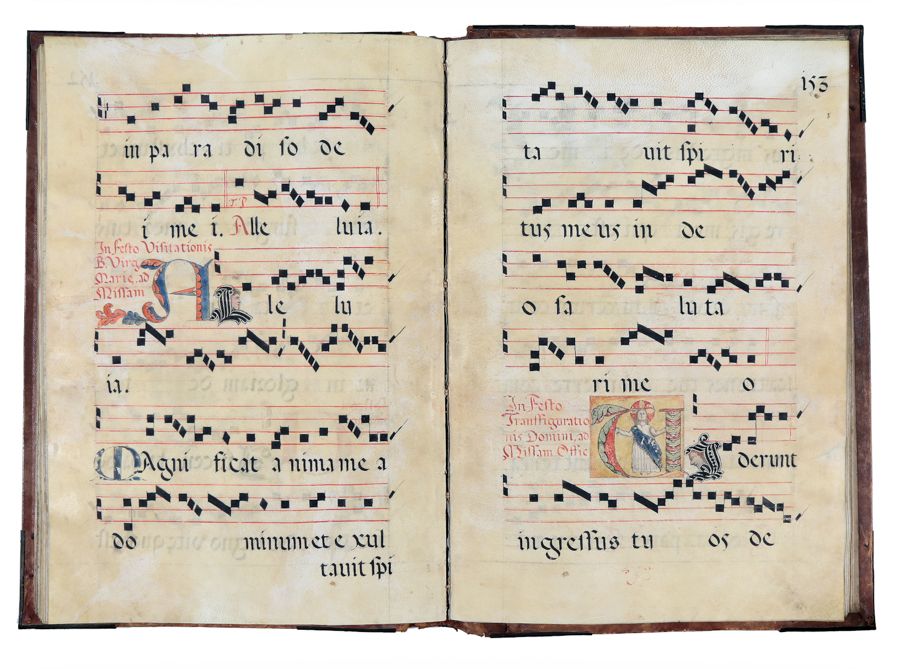 in pa ra di so de
i me i. Alle luia.
In Festo Visitationis
B. Virg.
Marie, ad
Missam
AL le lu
ia.
MAgni ficat a nima me a
do minum et e xul
tavit spi
153
ta vit spi ri
tus me us in de
o sa lu ta
ri me o
In Festo
Transfiguratio
nis Domini, ad
Missam. Offic
VI derunt
ingressus tu os de